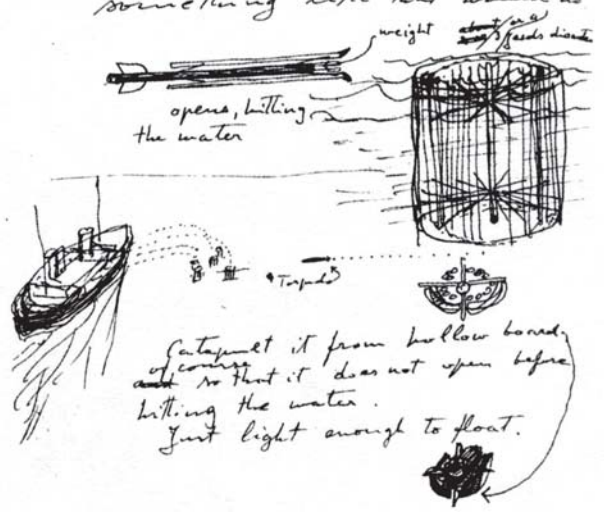 something
weight
about/or a
3 yards
opens, hitting
the water
Torpedo
Catapult it from hollow board,
of course
and so that it does not open before
hitting the water.
Just light enough to float.